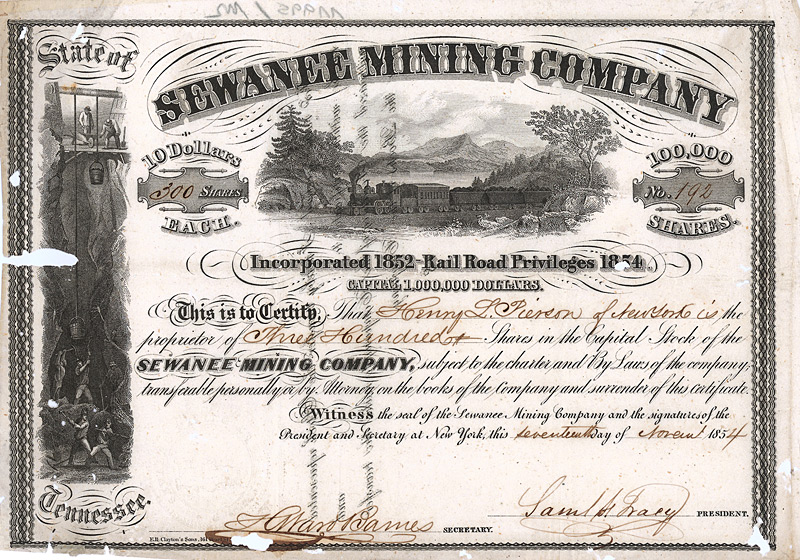 State of
SEWANEE MINING COMPANY
10 Dollars
EACH.
300 SHARES
100,000
SHARES.
No. 192
Incorporated 1852 - Rail Road Privileges 1854.
CAPITAL 1,000,000 DOLLARS.
This is to Certify, That Henry L. Pierson of New York is the
proprietor of Three Hundred Shares in the Capital Stock of the
SEWANEE MINING COMPANY, subject to the charter and By Laws of the company,
transferable personally or by Attorney, on the books of the Company and surrender of this certificate.
Witness the seal of the Sewanee Mining Company and the signatures of the
President and Secretary at New York, this seventeenth day of Novem 1854
Tennessee.
Saml H Tracy PRESIDENT.
Barnes SECRETARY.
E.B. Clayton's Sons,